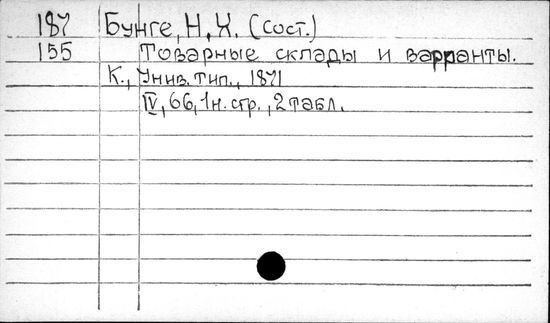 187 Бунге, Н, Х. (сост.)
155 Товарные склады и варранты.
К., Унив. тип., 1871
IV, 66, 1н. стр., 2 табл.